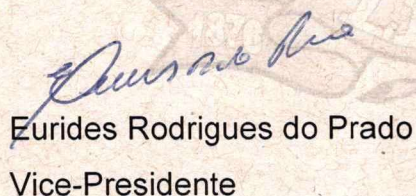 Eurides Rodrigues do Prado
Vice-Presidente